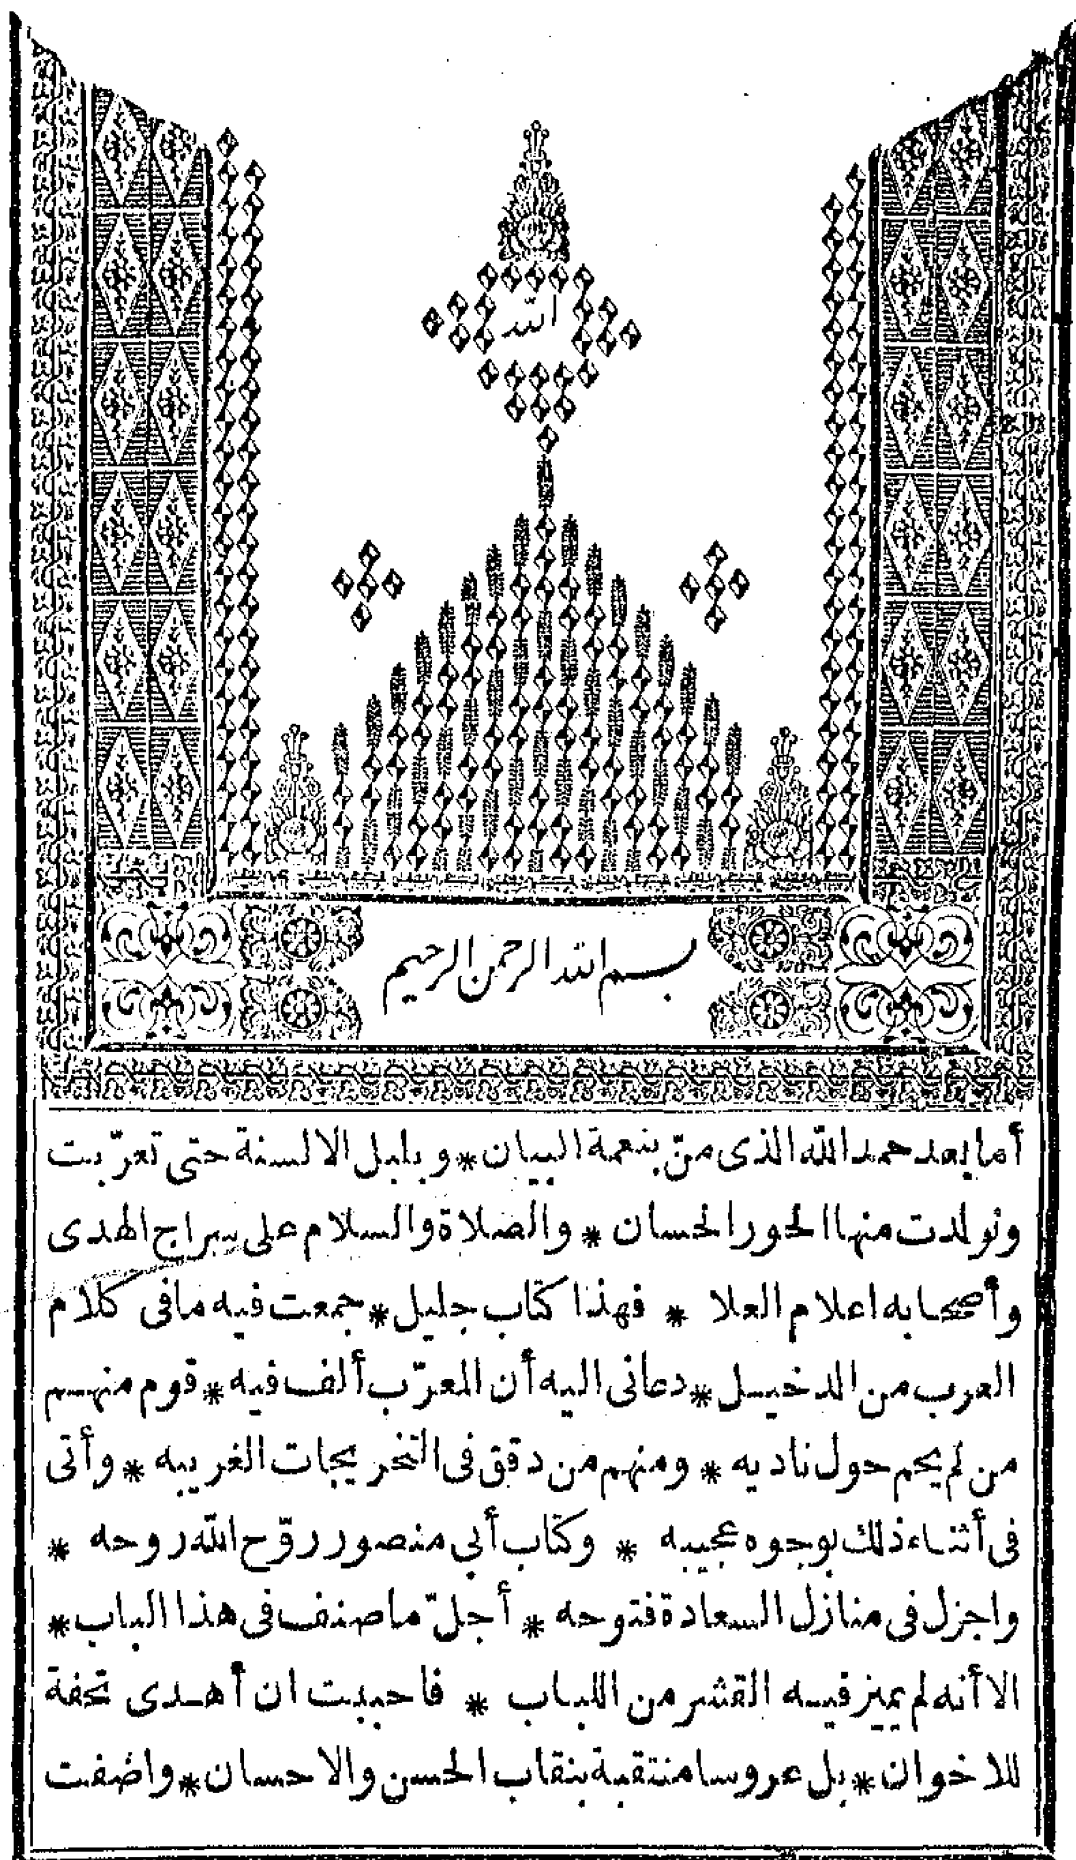 الله
بسم الله الرحمن الرحيم
أما بعد حمد الله الذى منّ بنعمة البيان * و بلبل الالسنة حتى تعرّبت
وتولدت منها الحور الحسان * والصلاة والسلام على سراج الهدى
وأصحابه اعلام العلا * فهذا كتاب جليل * جمعت فيه ما فى كلام
العرب من الدخيل * دعانى اليه أن المعرّب ألف فيه * قوم منهم
من لم يحم حول ناديه * ومنهم من دقق فى التخريجات الغريبه * وأتى
فى أثناء ذلك بوجوه عجيبه * وكتاب أبي منصور روّح الله روحه *
واجزل فى منازل السعادة فتوحه * أجلّ ما صنف فى هذا الباب *
الا أنه لم يميز فيه القشر من اللباب * فاحببت ان أهدى تحفة
للاخوان * بل عروسا منتقبة بنقاب الحسن والاحسان * واضفت